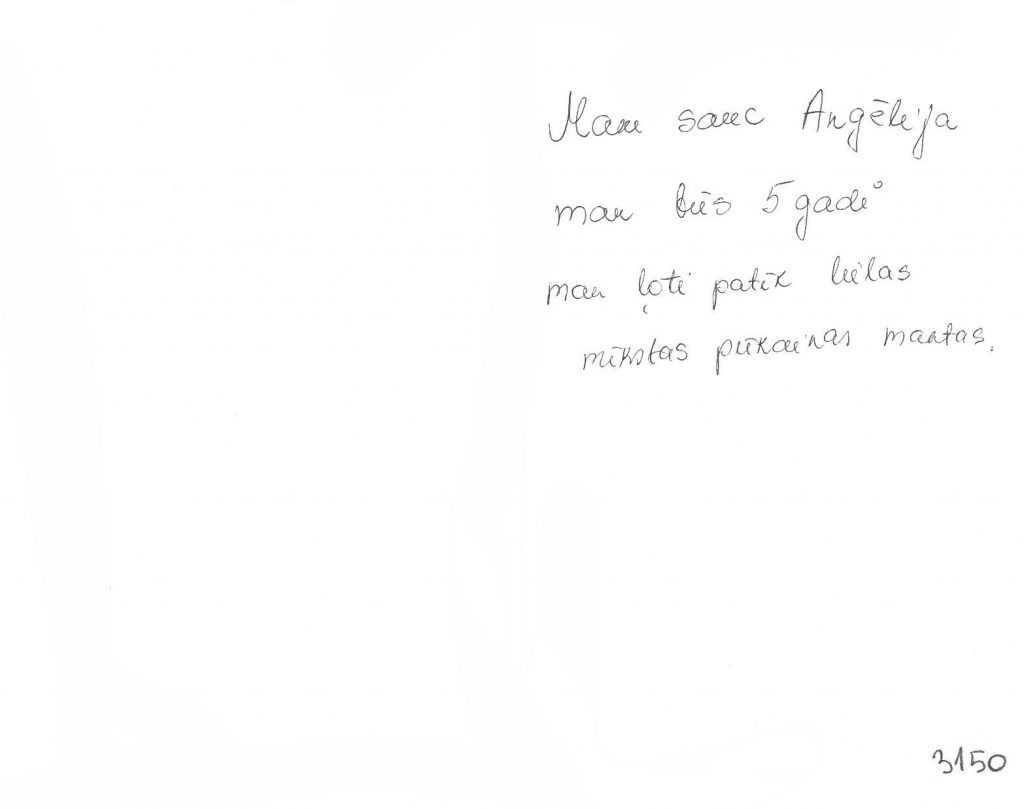 Mani sauc Angēlija
man būs 5 gadi
man ļoti patīk lielas
mīkstas pūkainas mantas.
3150